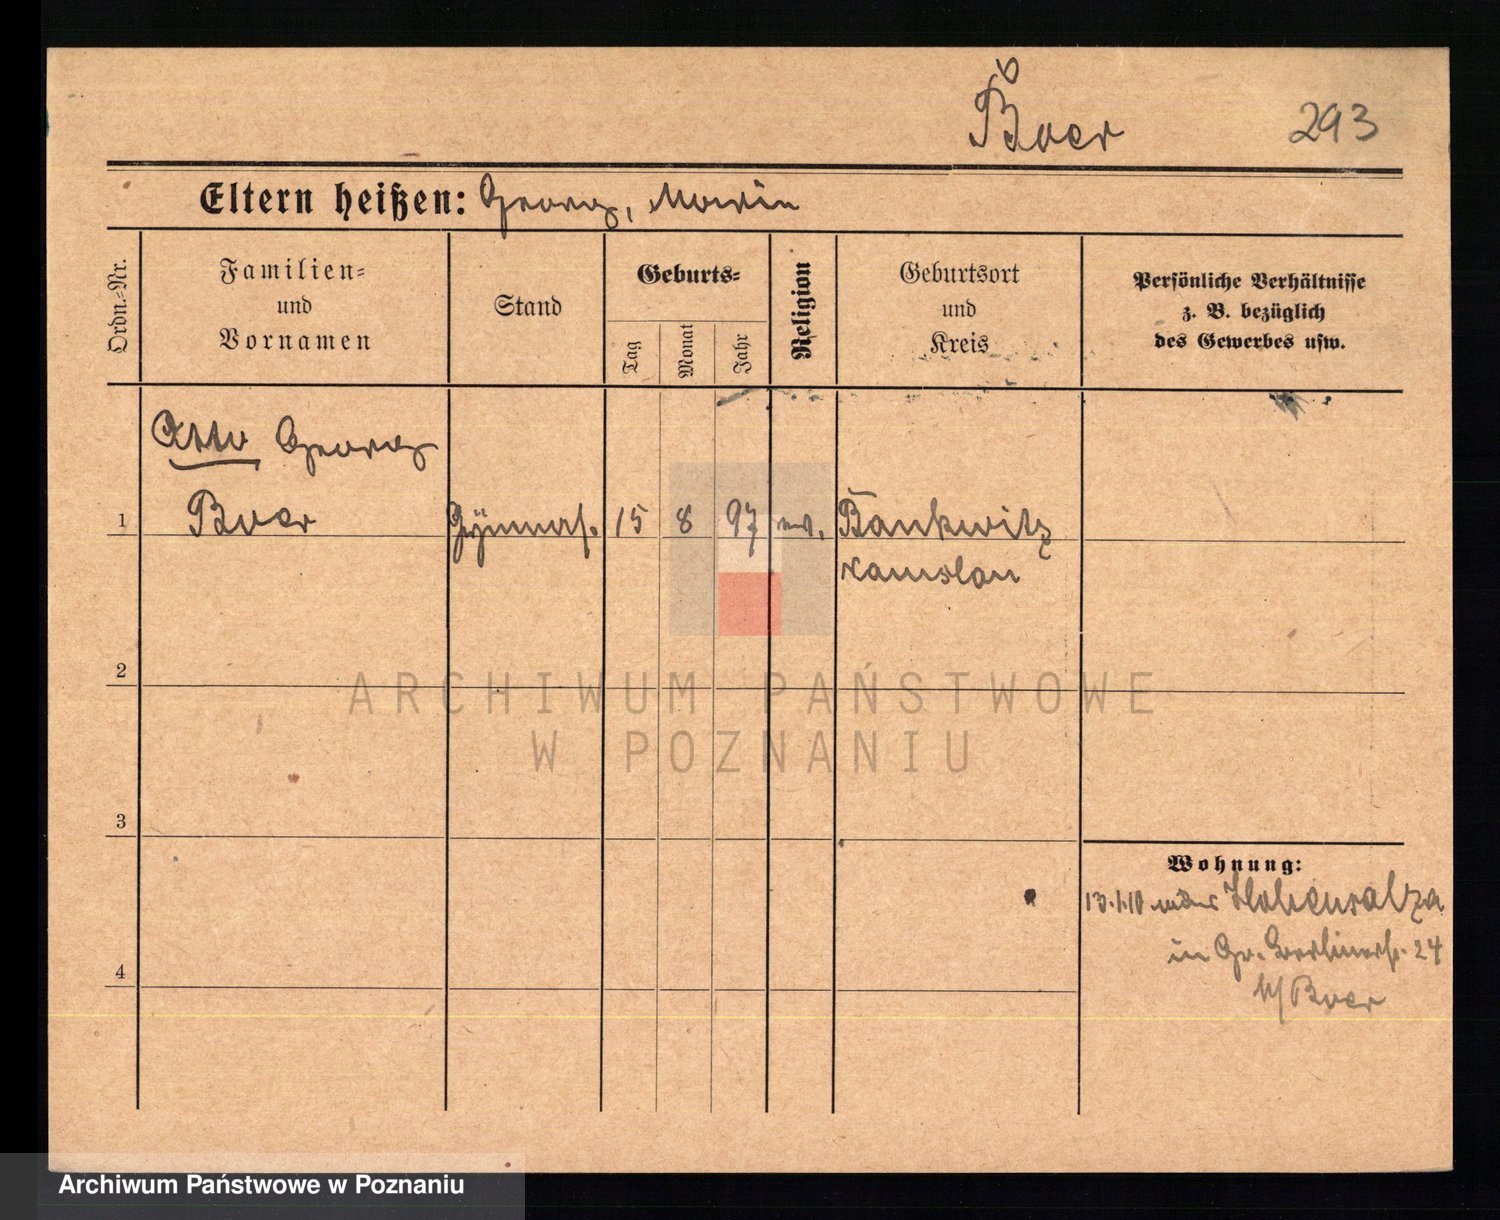 Boer
293
Eltern heißen: Georg, Maria
Ordn.-Nr.
Familien-
und
Vornamen
Stand
Geburts-
Tag
Monat
Jahr
Religion
Geburtsort
und
Kreis
Persönliche Verhältnisse
z. B. bezüglich
des Gewerbes usw.
Otto Georg
1
Boer
Gymnas.
15
8
97
Bankwitz
Namslau
2
3
4
Wohnung:
13.1.10 Hohensalza
in Gr. Berlinerstr. 24
b/ Boer
ARCHIWUM PAŃSTWOWE
W POZNANIU
Archiwum Państwowe w Poznaniu